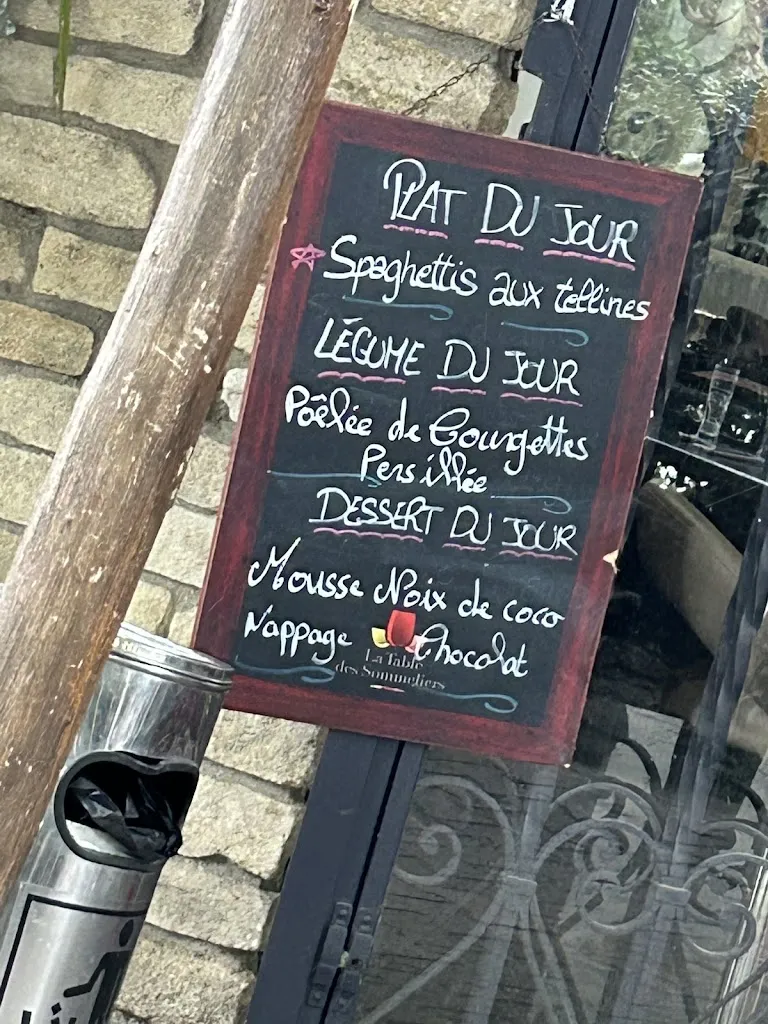 PLAT DU JOUR
Spaghettis aux tellines
LÉGUME DU JOUR
Poêlée de Courgettes
Persillée
DESSERT DU JOUR
Mousse Noix de coco
Nappage Chocolat
La Table
des Sommeliers